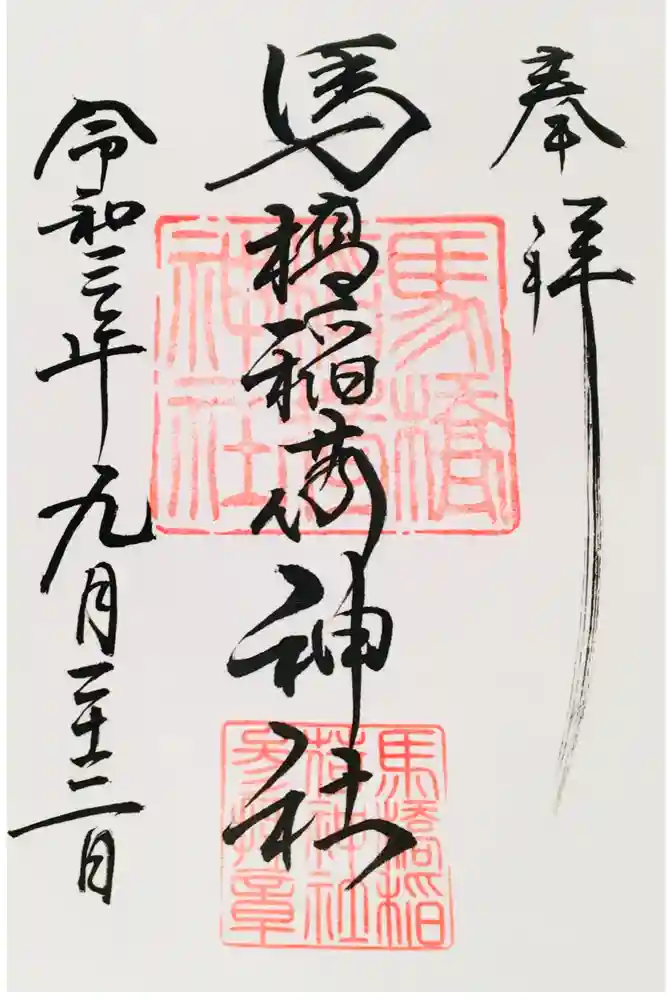 奉拝
馬橋稲荷神社
令和三年九月二十三日
馬橋
稲荷
神社
馬橋稲
荷神社
参拝章